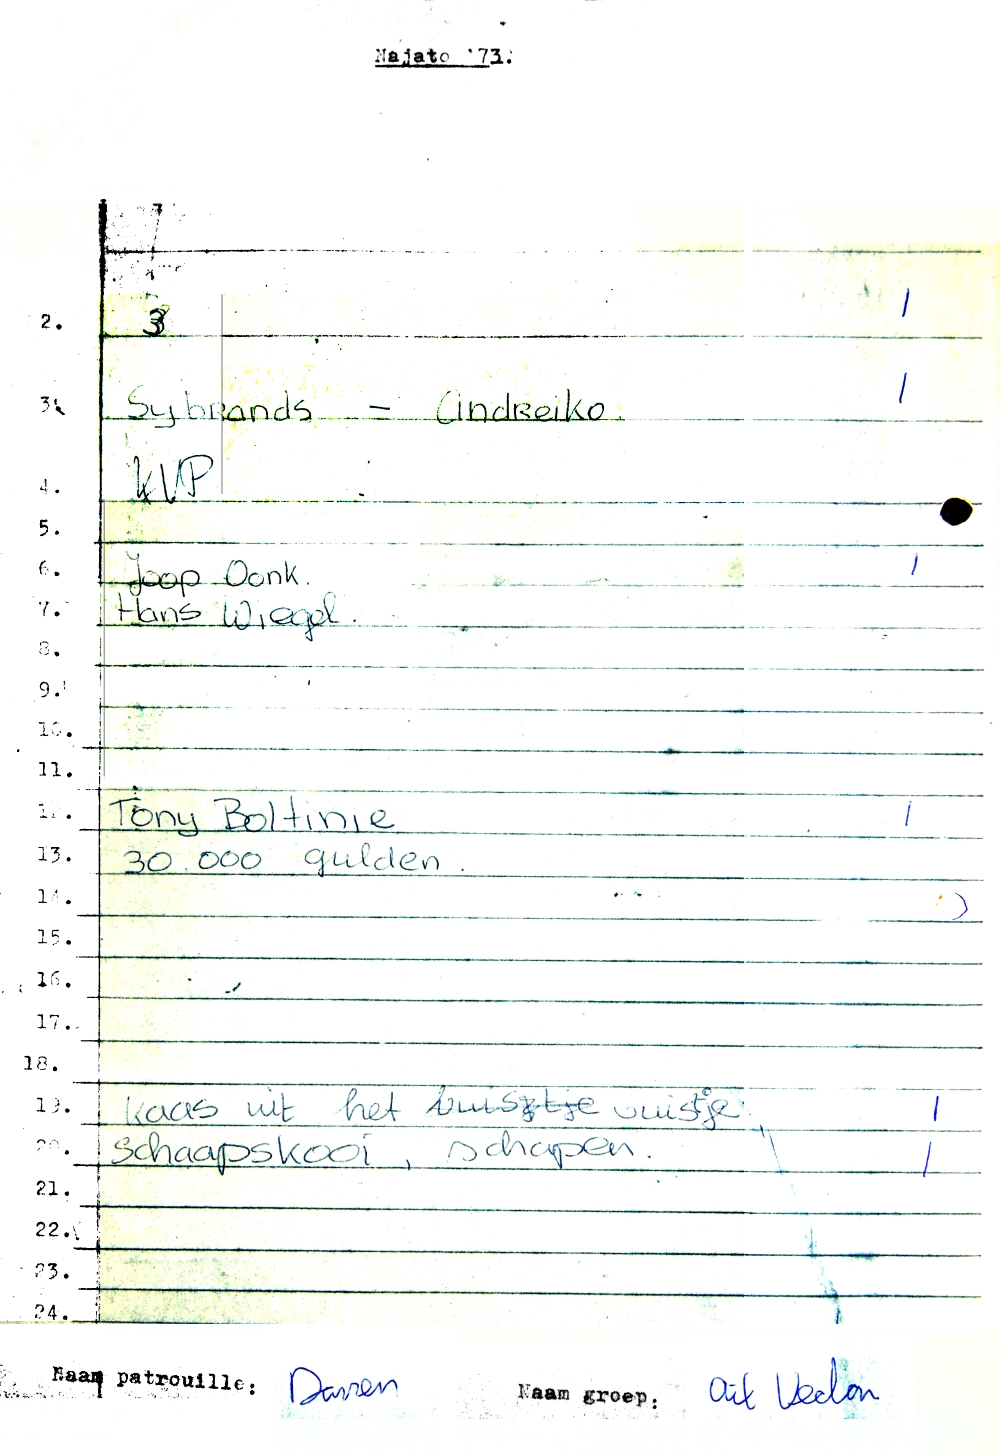 Najato '73.
2. 3 /
3. Sybrands - Cindreiko. /
4. KVP
5.
6. Joop Oonk. /
7. Hans Wiegel.
8.
9.
10.
11.
12. Tony Boltinie /
13. 30.000 gulden.
14.
15.
16.
17.
18.
19. kaas uit het vuistje. /
20. schaapskooi, schapen. /
21.
22.
23.
24.
Naam patrouille: Naam groep: